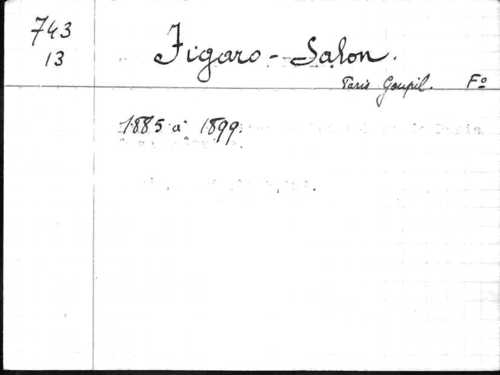 743
13
Figaro-Salon.
Paris Goupil. Fº
1885 à 1899.